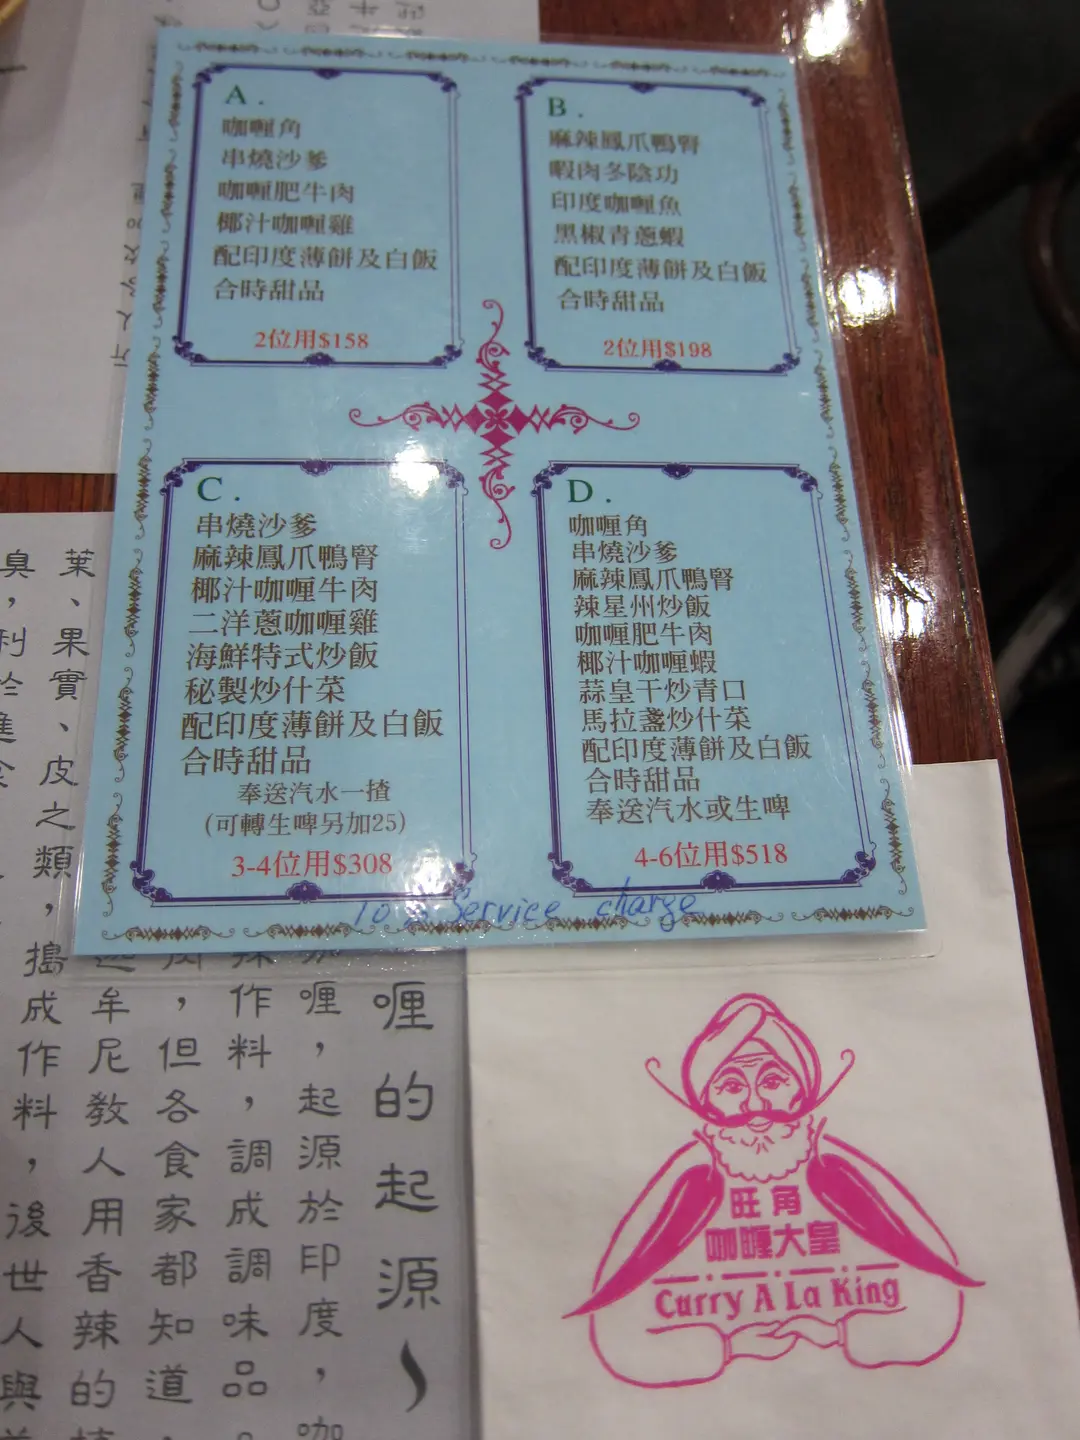 A.
咖喱角
串燒沙爹
咖喱肥牛肉
椰汁咖喱雞
配印度薄餅及白飯
合時甜品
2位用$158
B.
麻辣鳳爪鴨腎
暇肉多陰功
印度咖喱魚
黑椒青蔥蝦
配印度薄餅及白飯
合時甜品
2位用$198
C.
串燒沙爹
麻辣鳳爪鴨腎
椰汁咖喱牛肉
二洋蔥咖喱雞
海鮮特式炒飯
秘製炒什菜
配印度薄餅及白飯
合時甜品
奉送汽水一揸
(可轉生啤另加25)
3-4位用$308
D.
咖喱角
串燒沙爹
麻辣鳳爪鴨腎
辣星州炒飯
咖喱肥牛肉
椰汁咖喱蝦
蒜皇干炒青口
馬拉盞炒什菜
配印度薄餅及白飯
合時甜品
奉送汽水或生啤
4-6位用$518
10% Service charge
喱的起源
喱，起源於印度，咖
作料，調成調味品。
，但各食家都知道，
牟尼教人用香辣的
葉、果實、皮之類，搗成作料，後世人與
臭，利於進食
旺角
咖喱大皇
Curry A La King